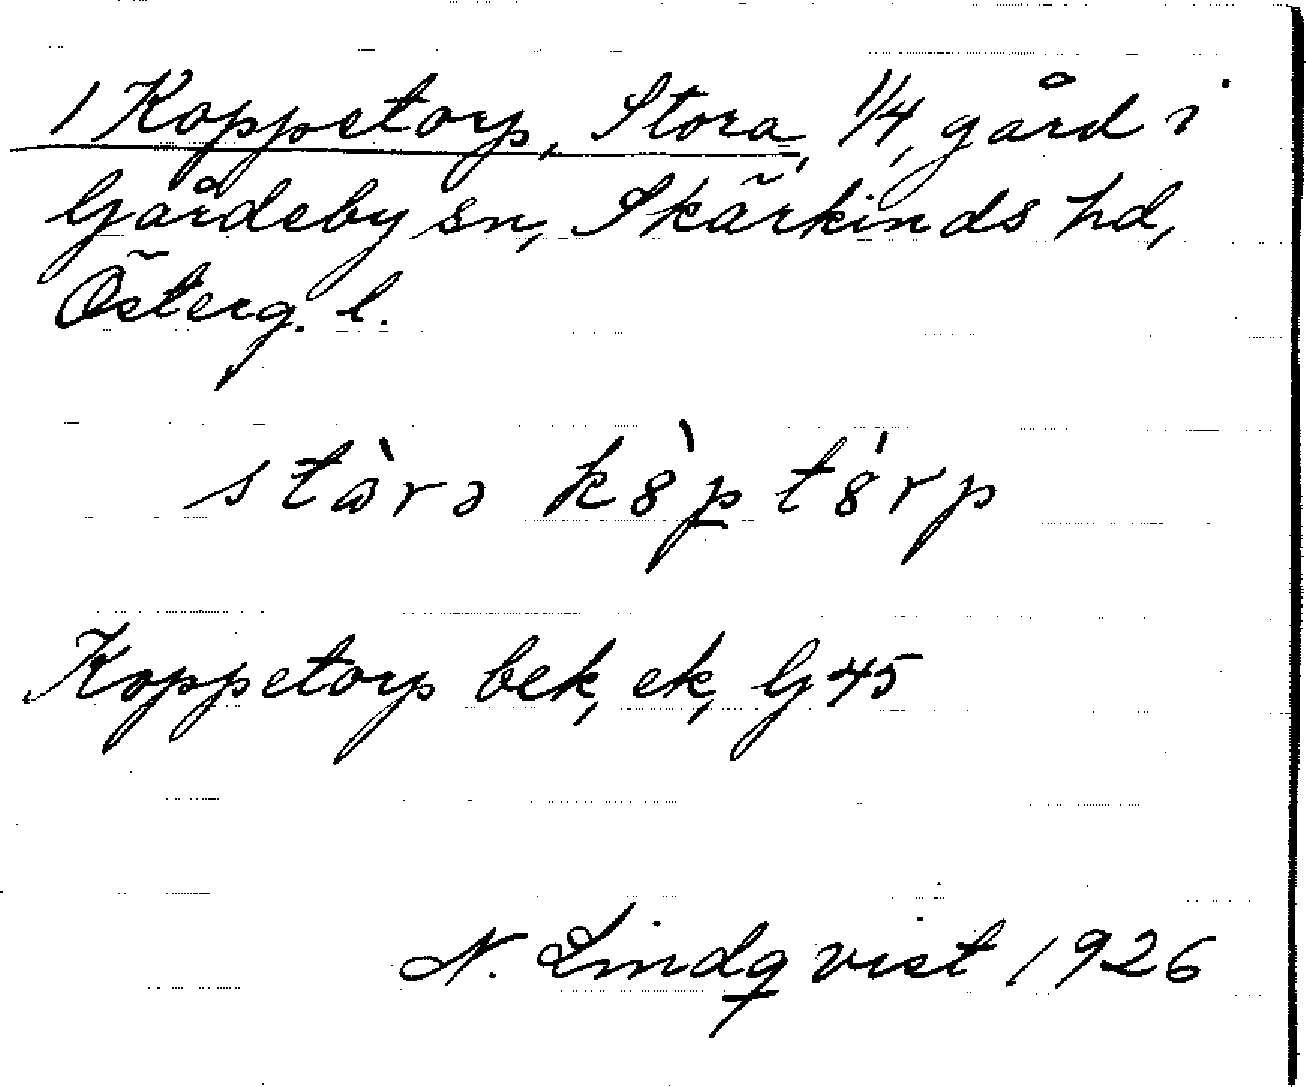 1 Koppetorp, Stora, 1/4, gård i
Gårdeby sn, Skärkinds hd,
Österg. l.
stὼrə kȣ̀p̲tȣ́rp
Koppetorp bek, ek, G 45
N. Lindqvist 1926